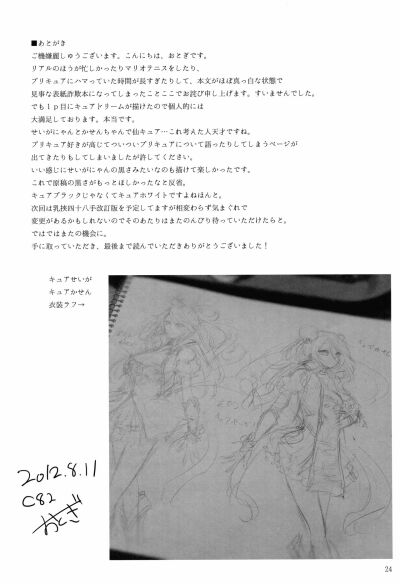 ■あとがき
ご機嫌麗しゅうございます。こんにちは、おとぎです。
リアルのほうが忙しかったりマリオテニスをしたり、
プリキュアにハマっていた時間が長すぎたりして、本文がほぼ真っ白な状態で
見事な表紙詐欺本になってしまったことここでお詫び申し上げます。すいませんでした。
でも1p目にキュアドリームが描けたので個人的には
大満足しております。本当です。
せいがにゃんとかせんちゃんで仙キュア…これ考えた人天才ですね。
プリキュア好きが高じてついついプリキュアについて語ったりしてしまうページが
出てきたりもしてしまいましたが許してください。
いい感じにせいがにゃんの黒さみたいなのも描けて楽しかったです。
これで原稿の黒さがもっとほしかったなと反省。
キュアブラックじゃなくてキュアホワイトですよねほんと。
次回は乳挟四十八手改訂版を予定してますが相変わらず気まぐれで
変更があるかもしれないのでそのあたりはまたのんびり待っていただけたらと。
ではではまたの機会に。
手に取っていただき、最後まで読んでいただきありがとうございました！
キュアせいが
キュアかせん
衣装ラフ→
2012.8.11
C82
おとぎ
24